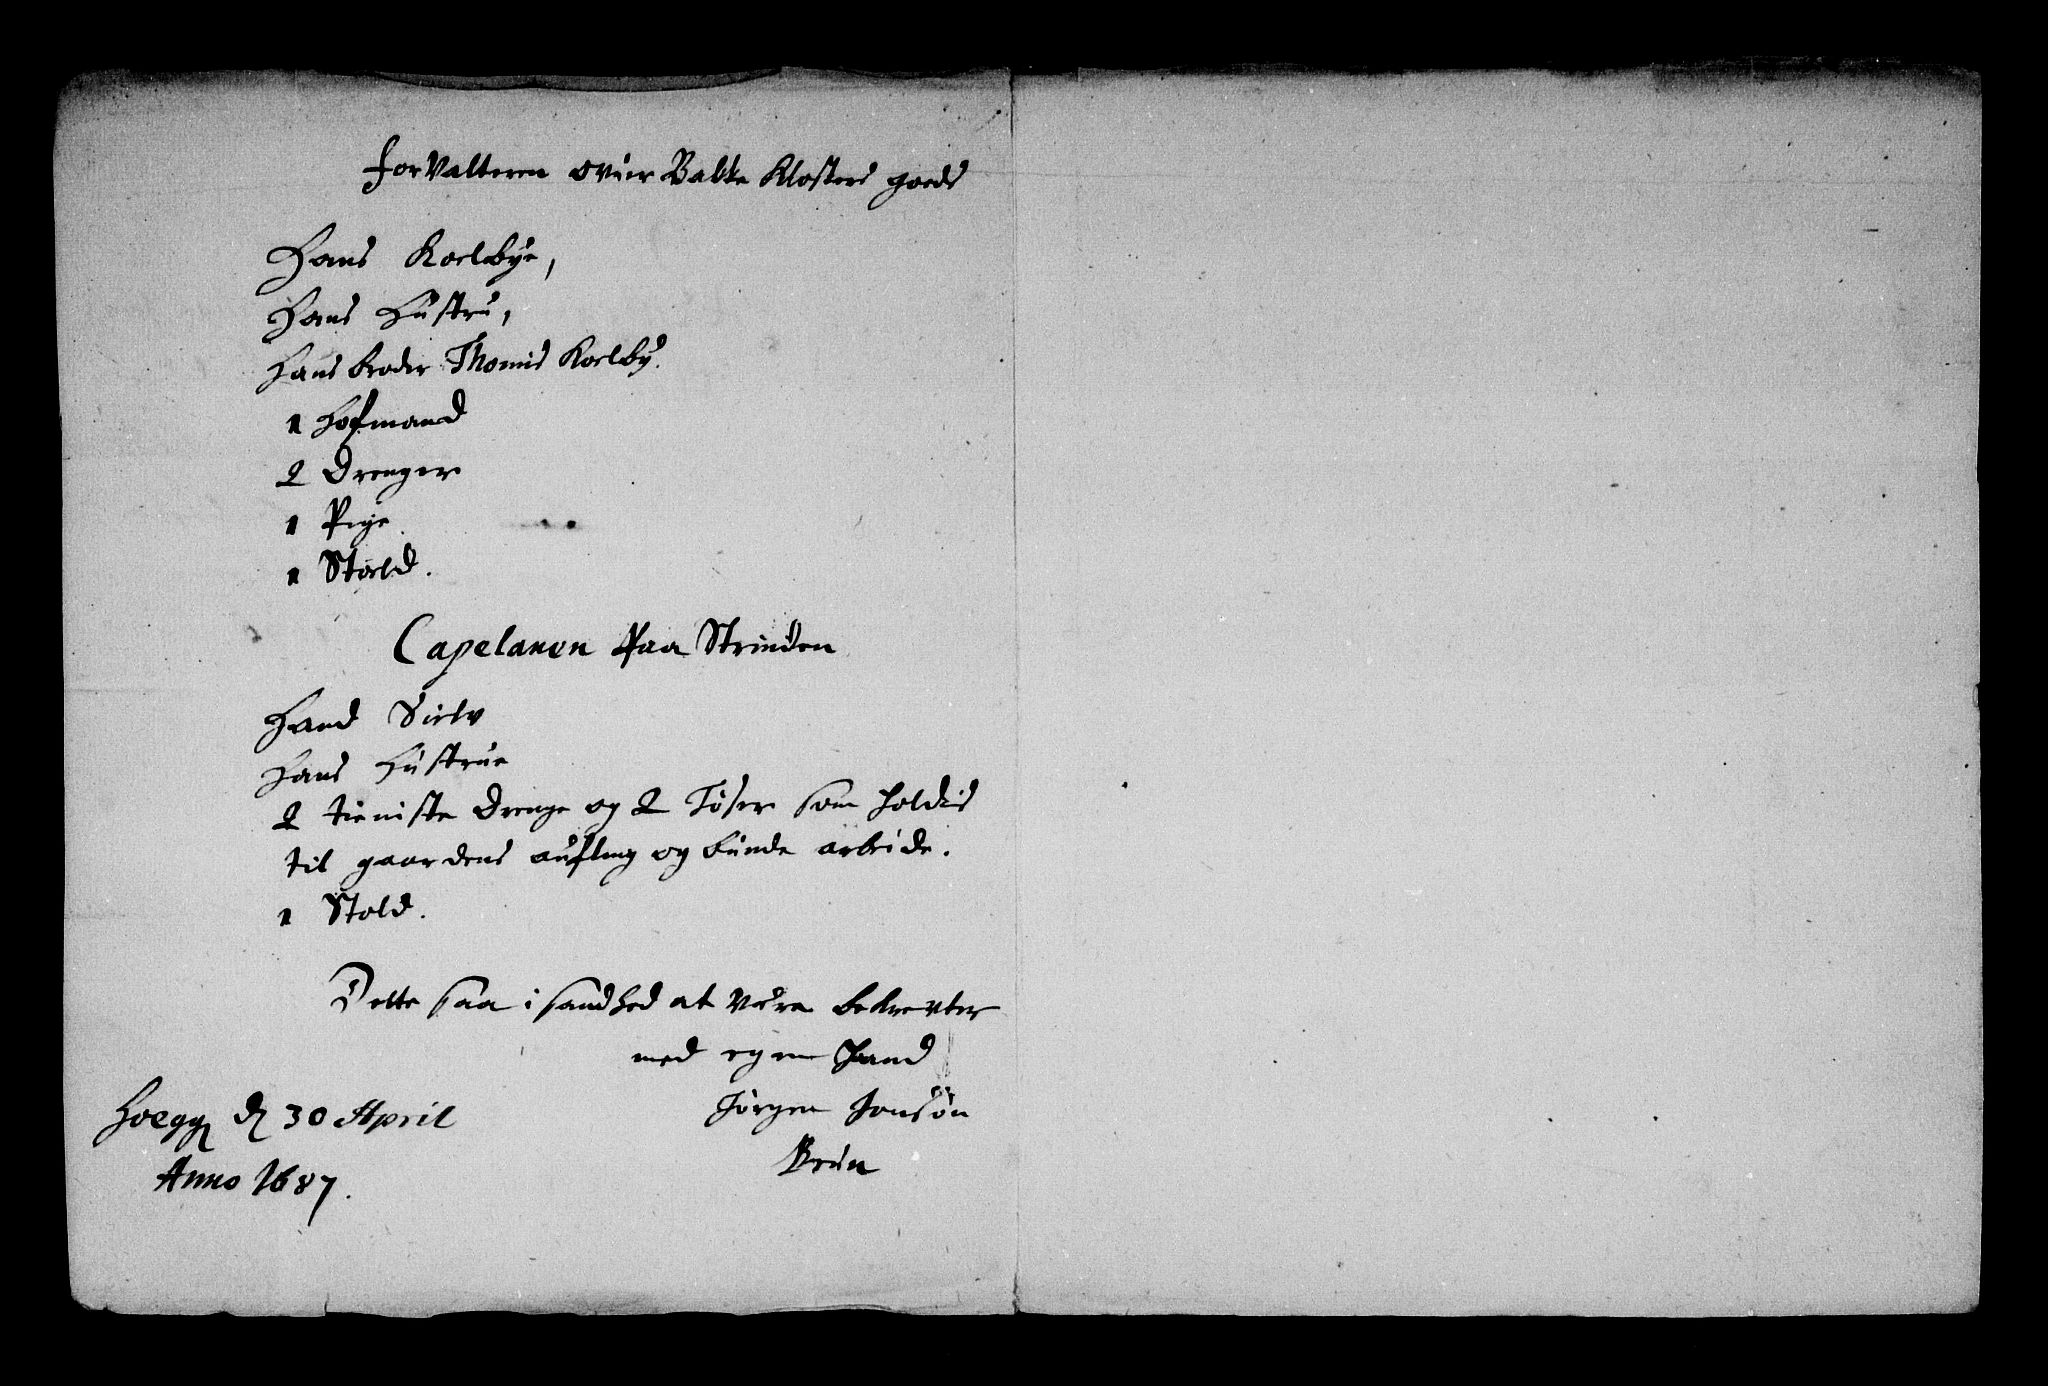 forValteren over Bakke Klosters goeds
Hans Koelbye,
Hans Hustru,
Hans broder Thomis Koelby.
1 Hofmand
2 Drenger
1 Pige
1 Stoeld.
Capelanen Paa Strinden
Hand Sielv
Hans Hustrue
2 tieniste Drenge og 2 Tøser som holdis
til gaardens aufling og bunde arbeide.
1 Stold.
Dette saa i sandhed at Være bekrevter
med egen Haand
Jørgen Jonsøn
Brun
Hoegg d 30 April
Anno 1687.